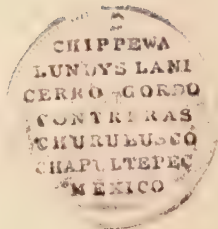 CHIPPEWA
LUNDYS LANE
CERRO GORDO
CONTRERAS
CHURUBUSCO
CHAPULTEPEC
MEXICO